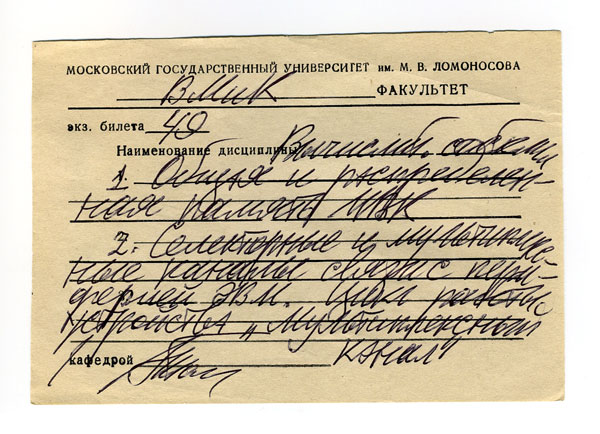 МОСКОВСКИЙ ГОСУДАРСТВЕННЫЙ УНИВЕРСИТЕТ им. М. В. ЛОМОНОСОВА
ВМиК ФАКУЛЬТЕТ
экз. билета 49
Наименование дисциплины Вычислит. системы
1. Общая и распределен-
ная память МВК
2. Селекторные и мультиплекс-
ные каналы связи с пери-
ферией ЭВМ. Цикл работы
устройства „Мультиплексный
канал"
кафедрой